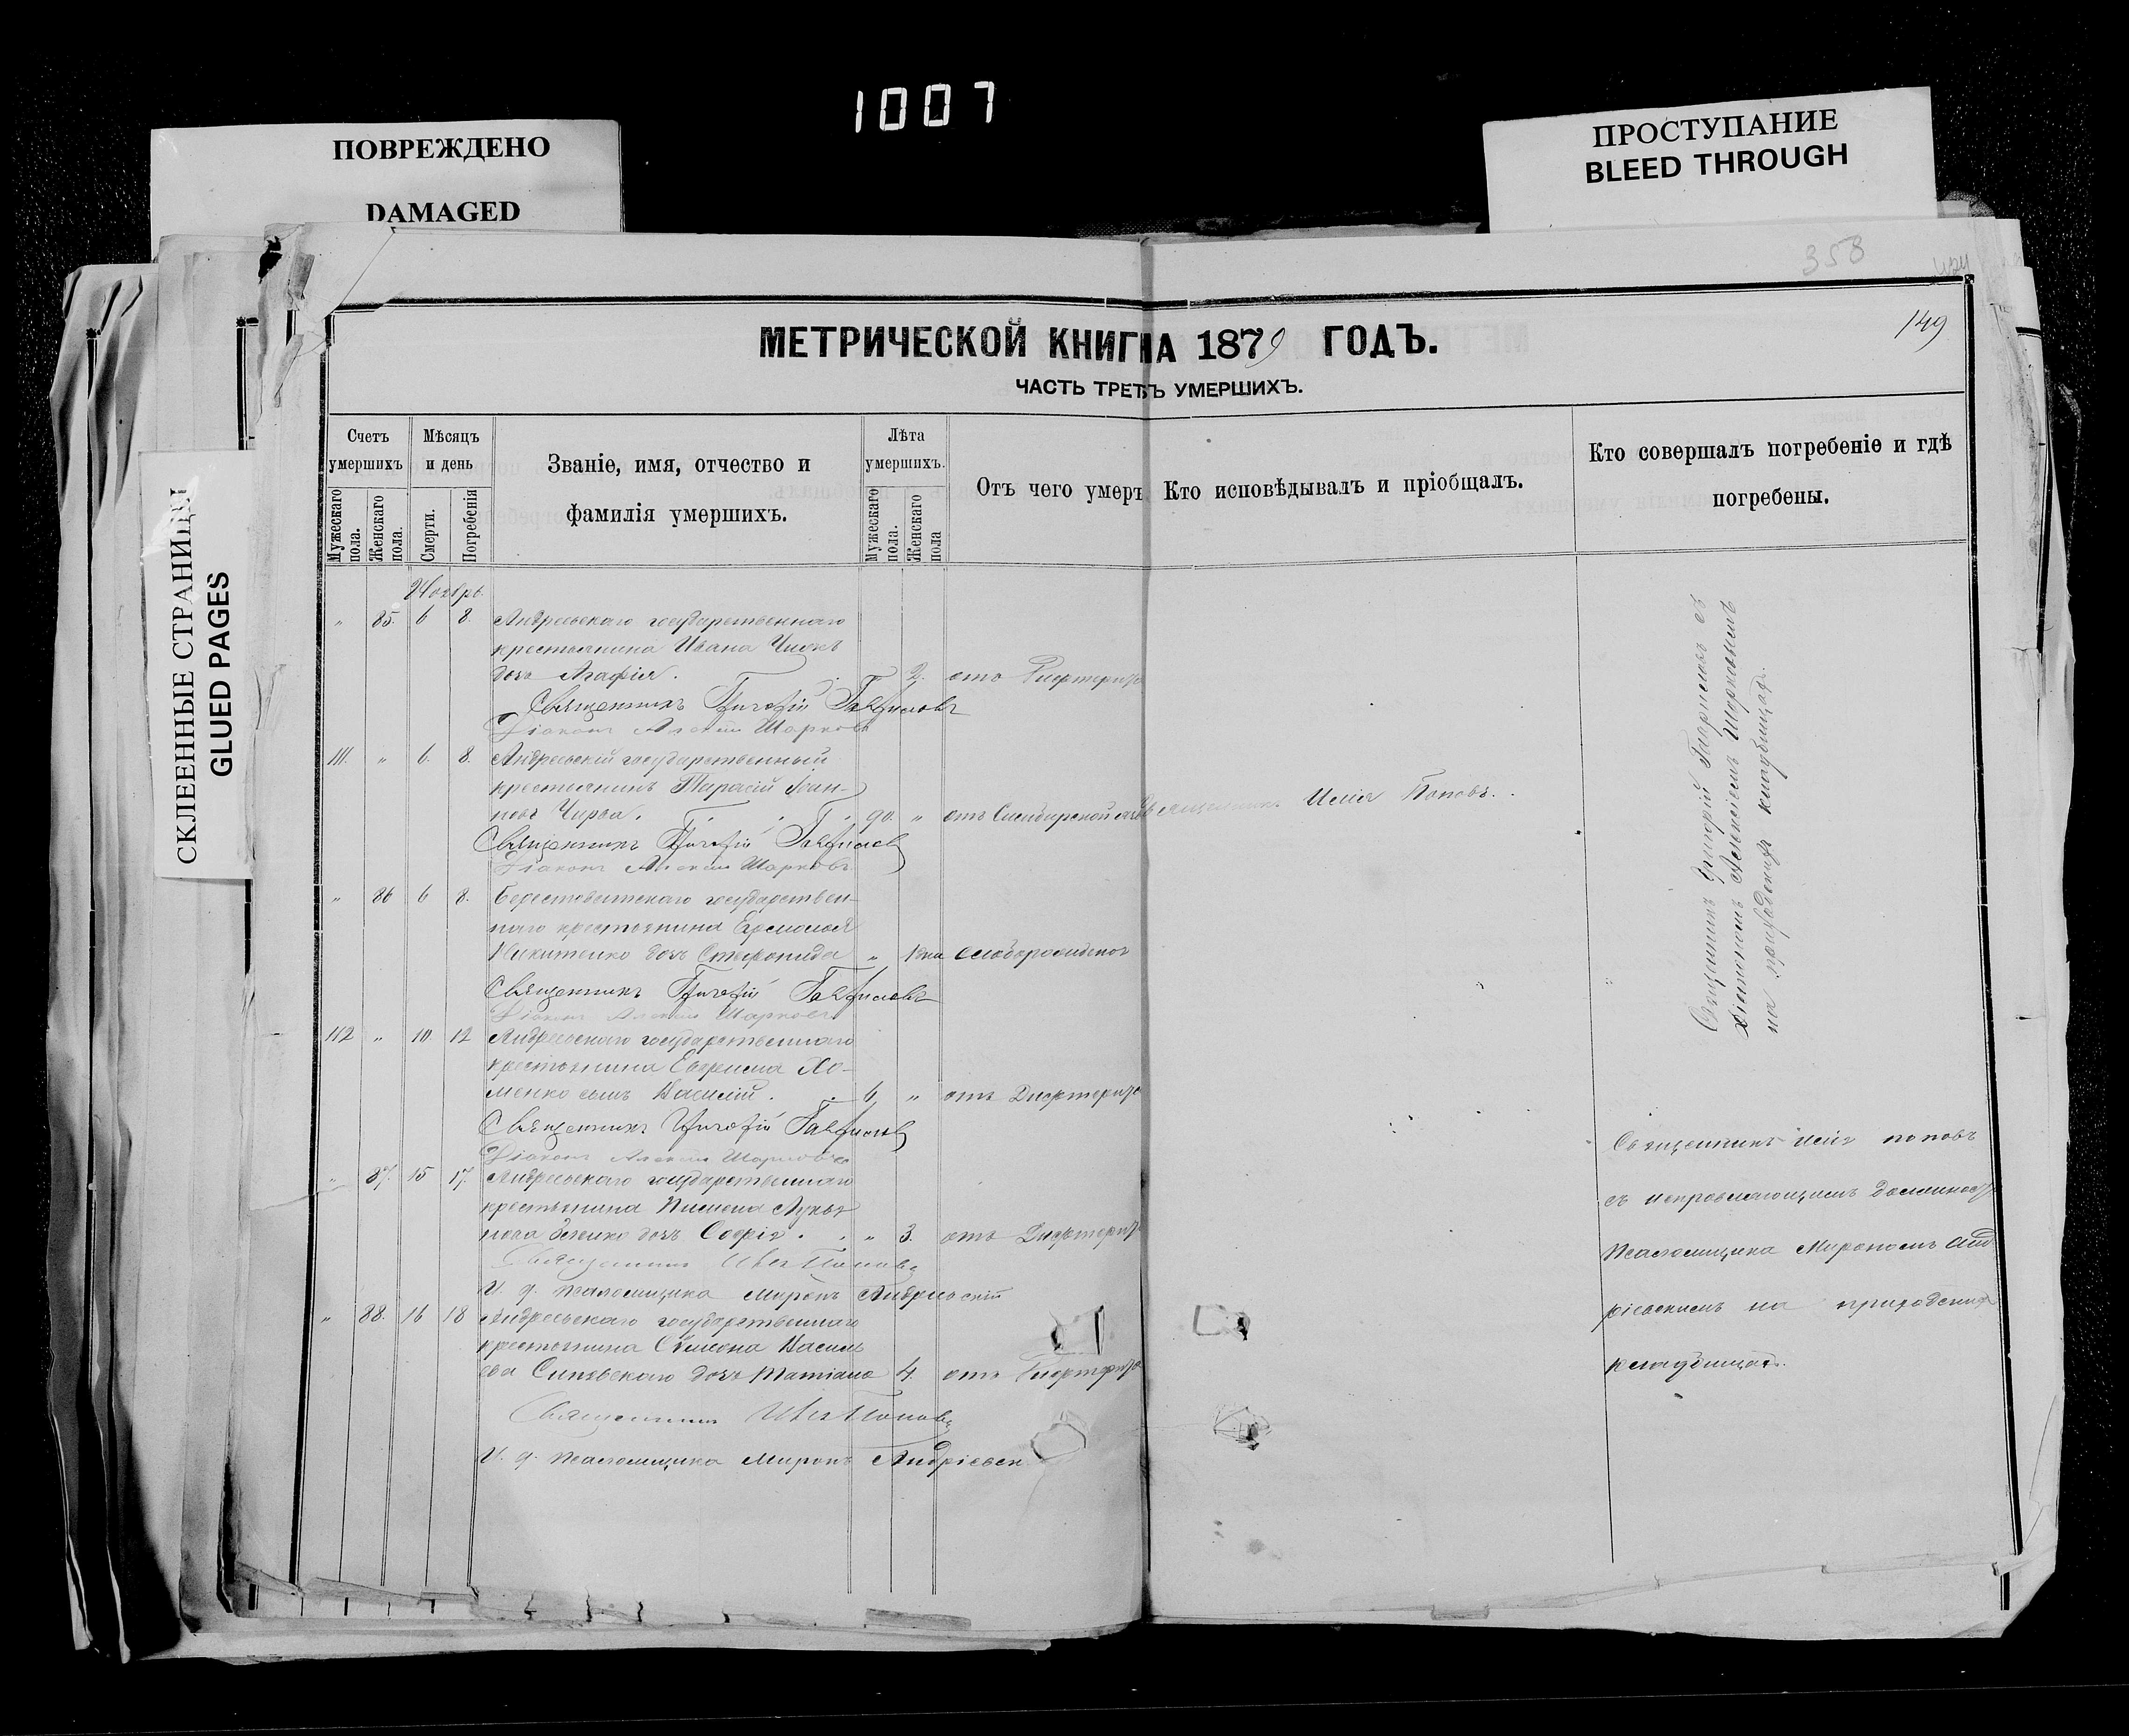 1007
ПОВРЕЖДЕНО
DAMAGED
ПРОСТУПАНИЕ
BLEED THROUGH
СКЛЕЕННЫЕ СТРАНИЦЫ
GLUED PAGES
358
149
МЕТРИЧЕСКОЙ КНИГ НА 1879 ГОДЪ.
ЧАСТЬ ТРЕТЬ УМЕРШИХЪ.
Счетъ умершихъ
Мужескаго пола.
Женскаго пола.
Мѣсяцъ и день
Смерти.
Погребенія
Званіе, имя, отчество и
фамилія умершихъ.
Лѣта умершихъ.
Мужескаго пола.
Женскаго пола
Отъ чего умеръ
Кто исповѣдывалъ и пріобщалъ.
Кто совершалъ погребеніе и гдѣ
погребены.
Ноябрь
" 85. 6 8. Андреевскаго государственнаго
крестьянина Ивана
дочь Агафія. 2. отъ Дифтерита
Священникъ Григорій Гавриловъ
Діаконъ Алексій Шарковъ
111. " 6. 8. Андреевскій государственный
крестьянинъ Тарасій Іоан-
новъ Чирва. 90. " отъ Сибирской язвы Священникъ Илія Поповъ.
Священникъ Григорій Гавриловъ
Діаконъ Алексій Шарковъ
" 86 6 8. Берестовенскаго государствен-
наго крестьянина Ермолая
Никитенко дочь Стефанида " 1 дня слаборожденная
Священникъ Григорій Гавриловъ
Діаконъ Алексій Шарковъ
112 " 10 12 Андреевскаго государственнаго
крестьянина Ефрема Хо-
менко сынъ Василій. 6 " отъ Дифтерита
Священникъ Григорій Гавриловъ
Діаконъ Алексій Шарковъ
" 87. 15 17. Андреевскаго государственнаго
крестьянина Пимена Лукья
нова дочь Софія. " 3. отъ Дифтерита
Священникъ Илія Поповъ
И. д. псаломщика Миронъ Андріевскій
" 88. 16 18 Андреевскаго государственнаго
крестьянина Симеона Василь
ева Синявскаго дочь Татіана 4. отъ Дифтерита
Священникъ Илія Поповъ
И. д. псаломщика Миронъ Андріевск
Священникъ Григорій Гавриловъ съ
діакономъ Алексіемъ Шарковымъ
на приходскомъ кладбищѣ.
Священникъ Илія Поповъ
съ исправляющимъ должность
псаломщика Мирономъ Анд
ріевскимъ на приходскомъ
кладбищѣ.